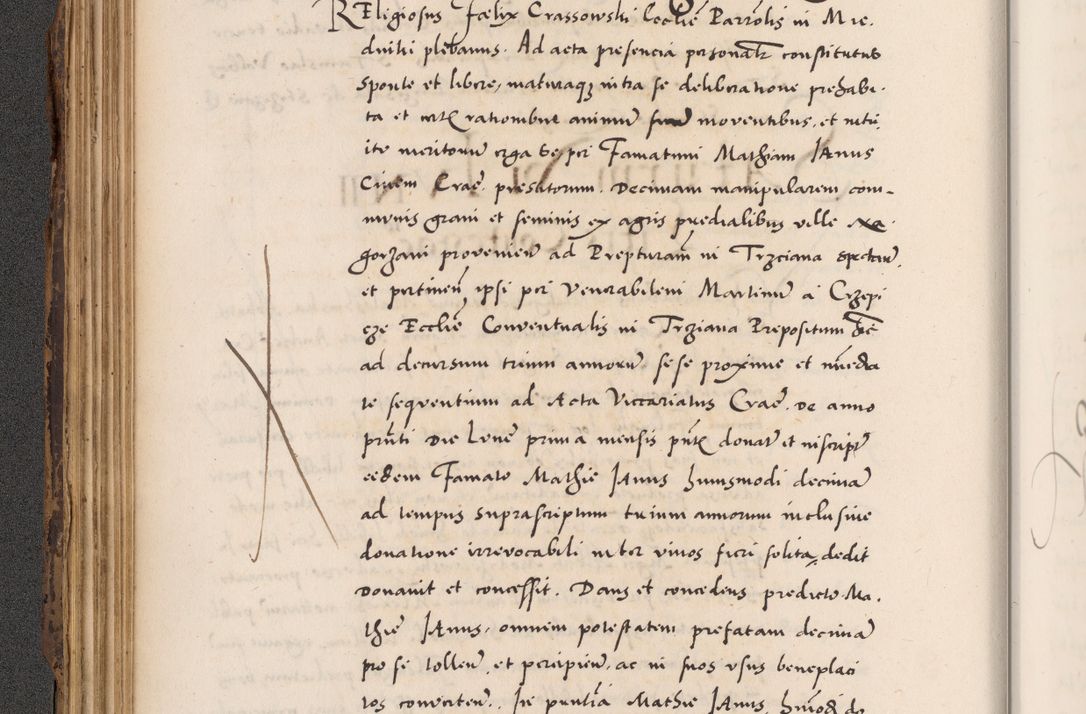 Religiosus Fœlix Crassowski Eccliẽ Parrolis in Mie.
dniki plebanus. Ad acta presencia personalr constitutus
sponte et libere, maturaq; intra se deliberatione prehabi.
ta et certis rationibus animũ moventibus, et intu,
itu meritorum erga se, per Famatum Mathiam Janus
Civem Crac̃. prestitorum. Decimam manipularem com-
munis grani et seminis ex agris predialibus ville
gorzani provenieñ ad Prepturam̃ in Trzciana spectañ,
et pertineñ ipsi per Venerabilem Martinũ a Crzepi
cze Eccliẽ Conventualis in Trziana Prepositum
ad decursum trium annorũ. sese proxime et immedia
te sequentium ad Acta Viccariatus Crac̃. de anno
prñti die Lunẽ prima mensis donatã et inscriptã
eidem Famato Mathie Janus huiusmodi decimã
ad tempus suprascriptum trium annorum inclusive
donatione irrevocabili inter vivos fieri solita, dedit
donavit et concessit. Dans et concedens predicto Ma.
thie Janus, omnem potestatem prefatam decimã
pro se tolleñ, et percipieñ, ac in suos usus beneplaci
tos converteñ. In prñtia Mathie Janus, de